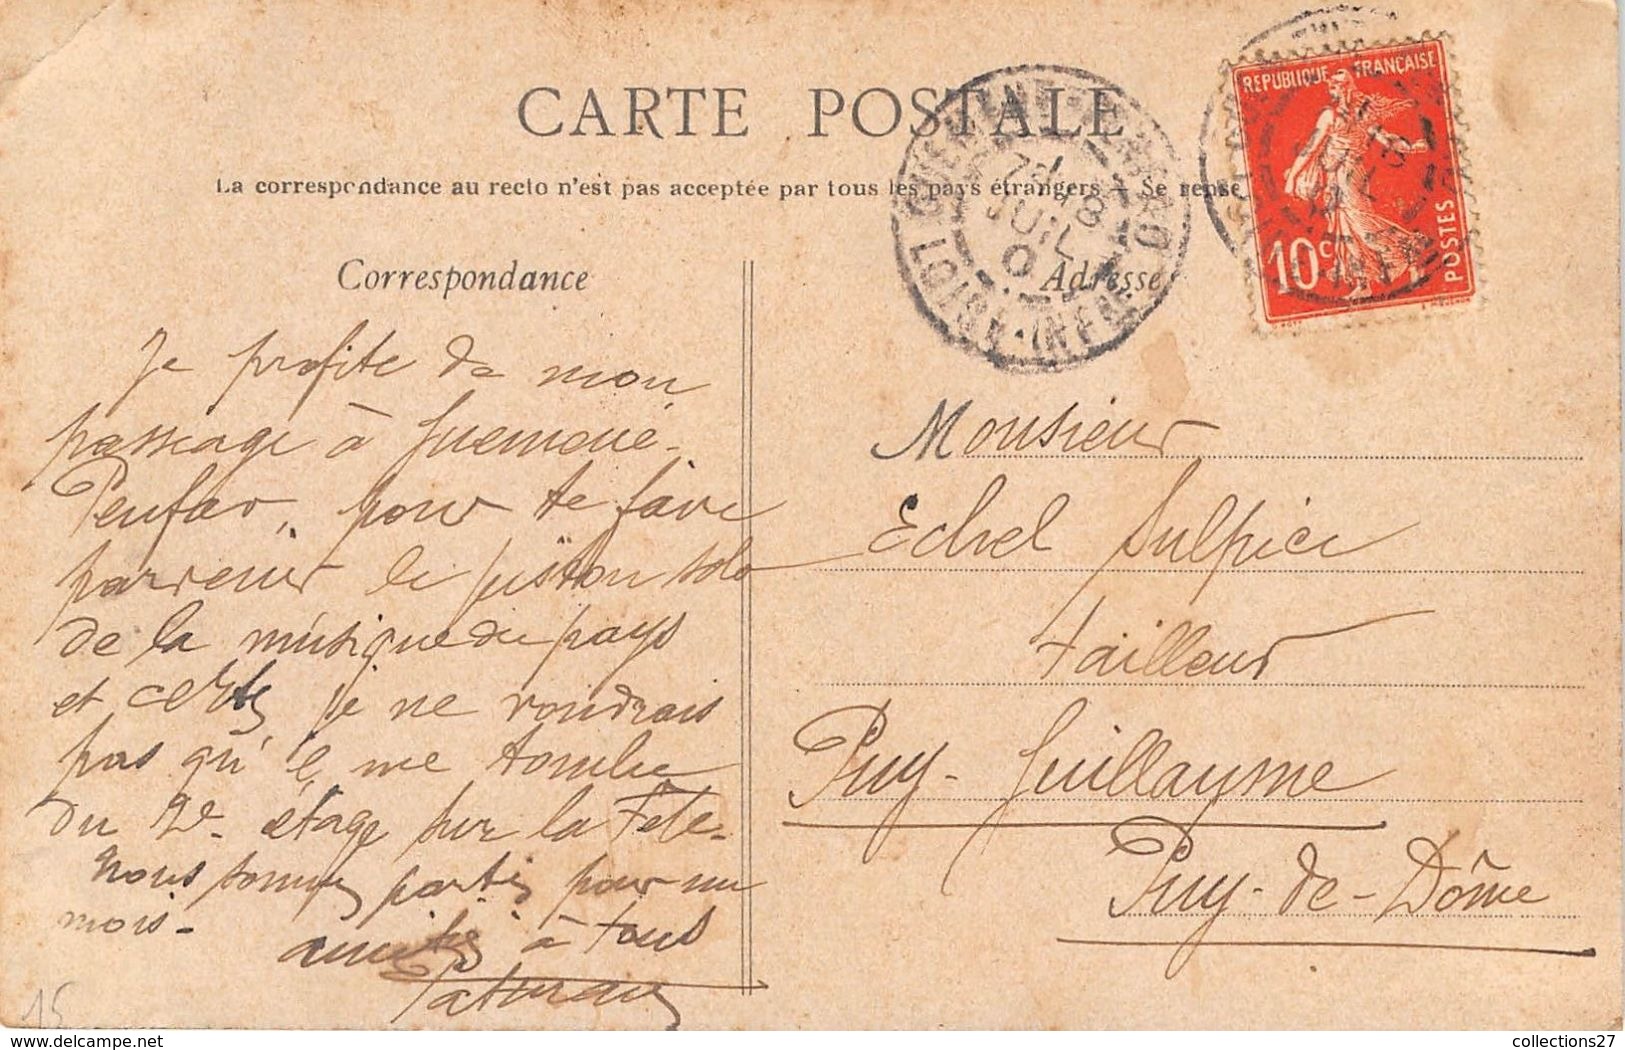 CARTE POSTALE
La correspondance au recto n'est pas acceptée par tous les pays étrangers - Se rense
Correspondance
Adresse
REPUBLIQUE FRANÇAISE
10c
POSTES
JUIL
LOIRE-INFRE
Je profite de mon
passage à Guemené-
Penfao, pour te faire
parvenir le piston solo
de la musique du pays
et certes je ne voudrais
pas qu'il me tombe
du 2e étage sur la tête-
nous sommes partis pour un
mois-
amitiés à tous
Monsieur
Echel Sulpice
tailleur
Puy-Guillayme
Puy-de-Dôme
15
www.delcampe.net
collections27